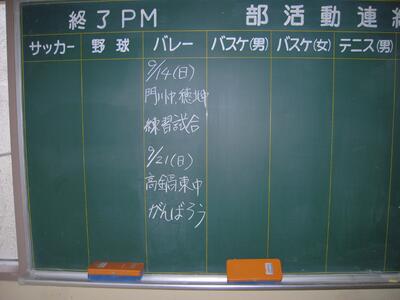 終了PM 部活動連
サッカー 野球 バレー バスケ(男) バスケ(女) テニス(男)
9/14(日)
門川中、穂北中
練習試合
9/21(日)
高鍋東中
がんばろう